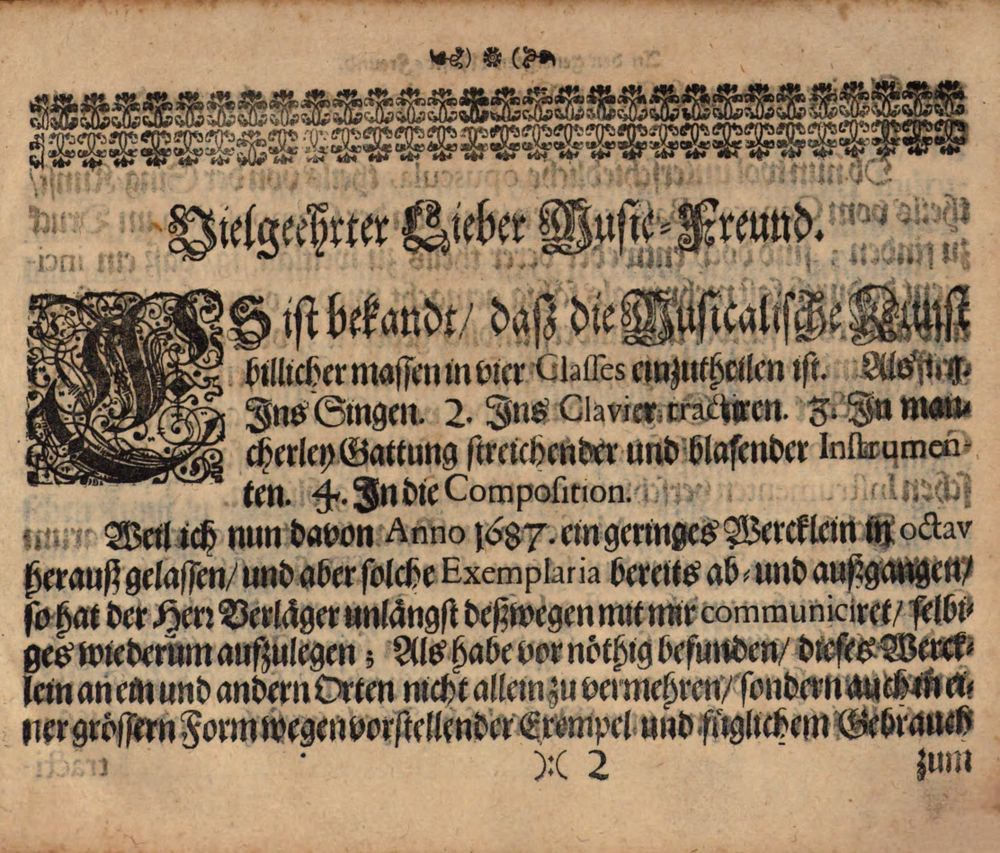 Vielgeehrter Lieber Music-Freund.
ES ist bekandt/ daß die Musicalische Kunst
billicher massen in vier Classes einzutheilen ist. Als
Ins Singen. 2. Ins Clavier tractiren. 3. In man-
cherley Gattung streichender und blasender Instrumen-
ten. 4. In die Composition.
Weil ich nun davon Anno 1687. ein geringes Wercklein in octav
herauß gelassen/ und aber solche Exemplaria bereits ab- und außgangen/
so hat der Herr Verläger unlängst deßwegen mit mir communiciret/ selbi-
ges wiederum aufzulegen; Als habe vor nöthig befunden/ dieses Werck-
lein an ein und andern Orten nicht allein zu vermehren/ sondern auch in ei-
ner grössern Form wegen vorstellender Exempel und füglichem Gebrauch
):( 2 zum